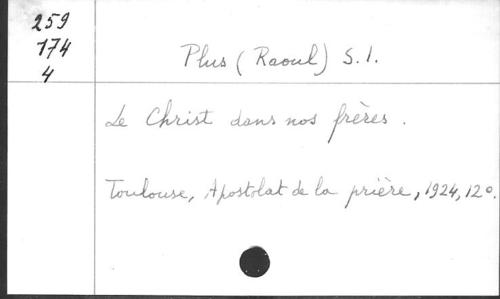 259
174
4
Plus (Raoul) S. I.
Le Christ dans nos frères.
Toulouse, Apostolat de la prière, 1924, 12º.